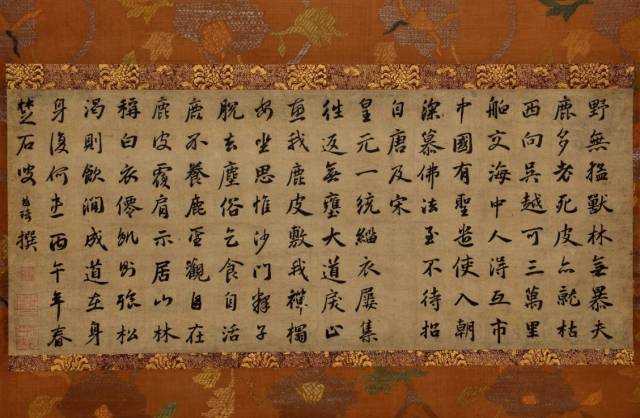 野無猛獸林無暴夫
鹿多老死皮亦就枯
西向吳越可三萬里
舶交海中人得互市
中國有聖遣使入朝
深慕佛法至不待招
自唐及宋
皇元一統緇衣屢集
往返無壅大道戾止
惠我鹿皮敷我禪榻
安坐思惟沙門釋子
脫去塵俗乞食自活
不養鹿觀自在
鹿皮覆肩示居山林
稱白衣僊飢則飡松
渴則飲澗成道在身
身復何患丙午年春
石叟撰